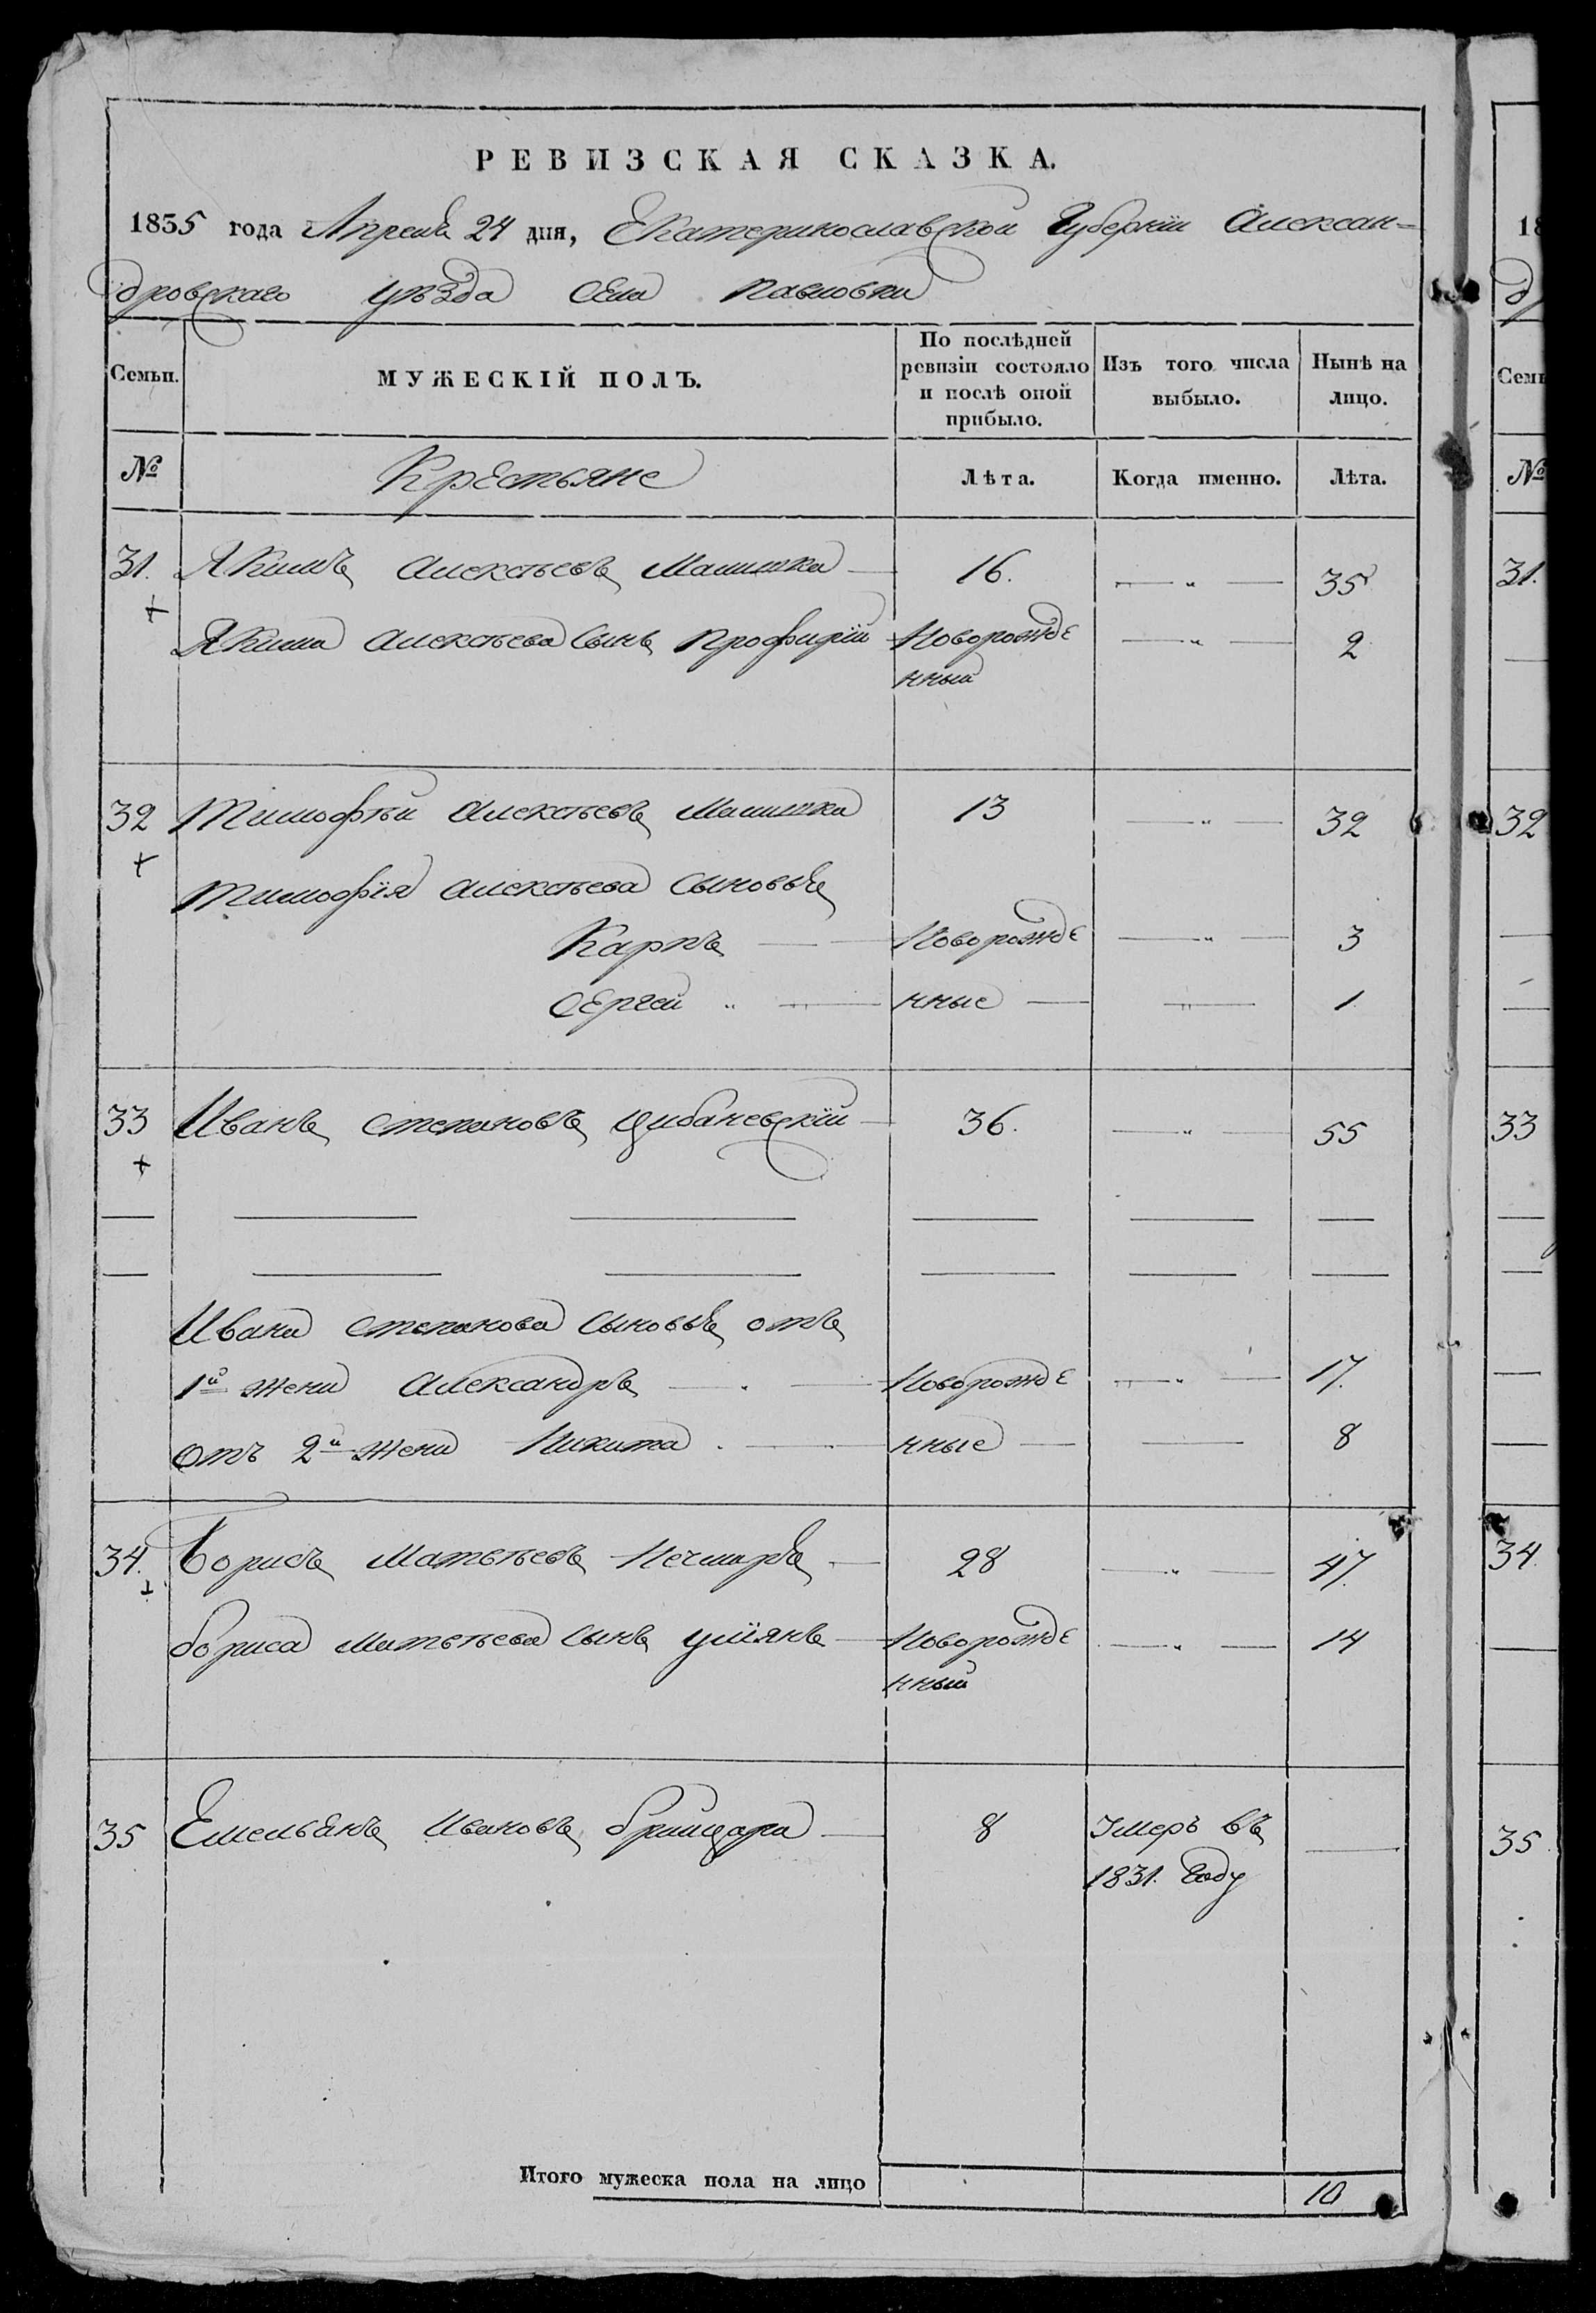 РЕВИЗСКАЯ СКАЗКА.
1835 года Апреля 24 дня, Екатеринославской Губернïи Алексан=
дровскаго уѣзда села Павловки
Семьи. МУЖЕСКІЙ ПОЛЪ. По послѣдней ревизіи состояло и послѣ оной прибыло. Изъ того числа выбыло. Нынѣ на лицо.
№ Крестьяне Лѣта. Когда именно. Лѣта.
31. Якимъ Алексѣевъ Малишка 16. — „ — 35
Якима Алексѣева сынъ Профирïй Новорожде — „ — 2
нный
32 Тимофѣй Алексѣевъ Малишка 13 — „ — 32
Тимофïя Алексѣева сыновья
Карпъ — Новорожде — „ — 3
Сергей „ — „ — нные — — „ — 1
33 Иванъ Степановъ Цибаневскïй 36. — „ — 55
Ивана Степанова сыновья отъ
1й жени Александръ — Новорожде — „ — 17.
отъ 2й жени Никита — нные — — 8
34. Борисъ Матвѣевъ 28 — „ — 47.
Бориса Матвѣева сынъ Улïянъ Новорожде — „ — 14
нный
35 Емельянъ Ивановъ 8 Умеръ въ —
1831. году
Итого мужеска пола на лицо 10
18
Семь
№
31.
32
33
34.
35